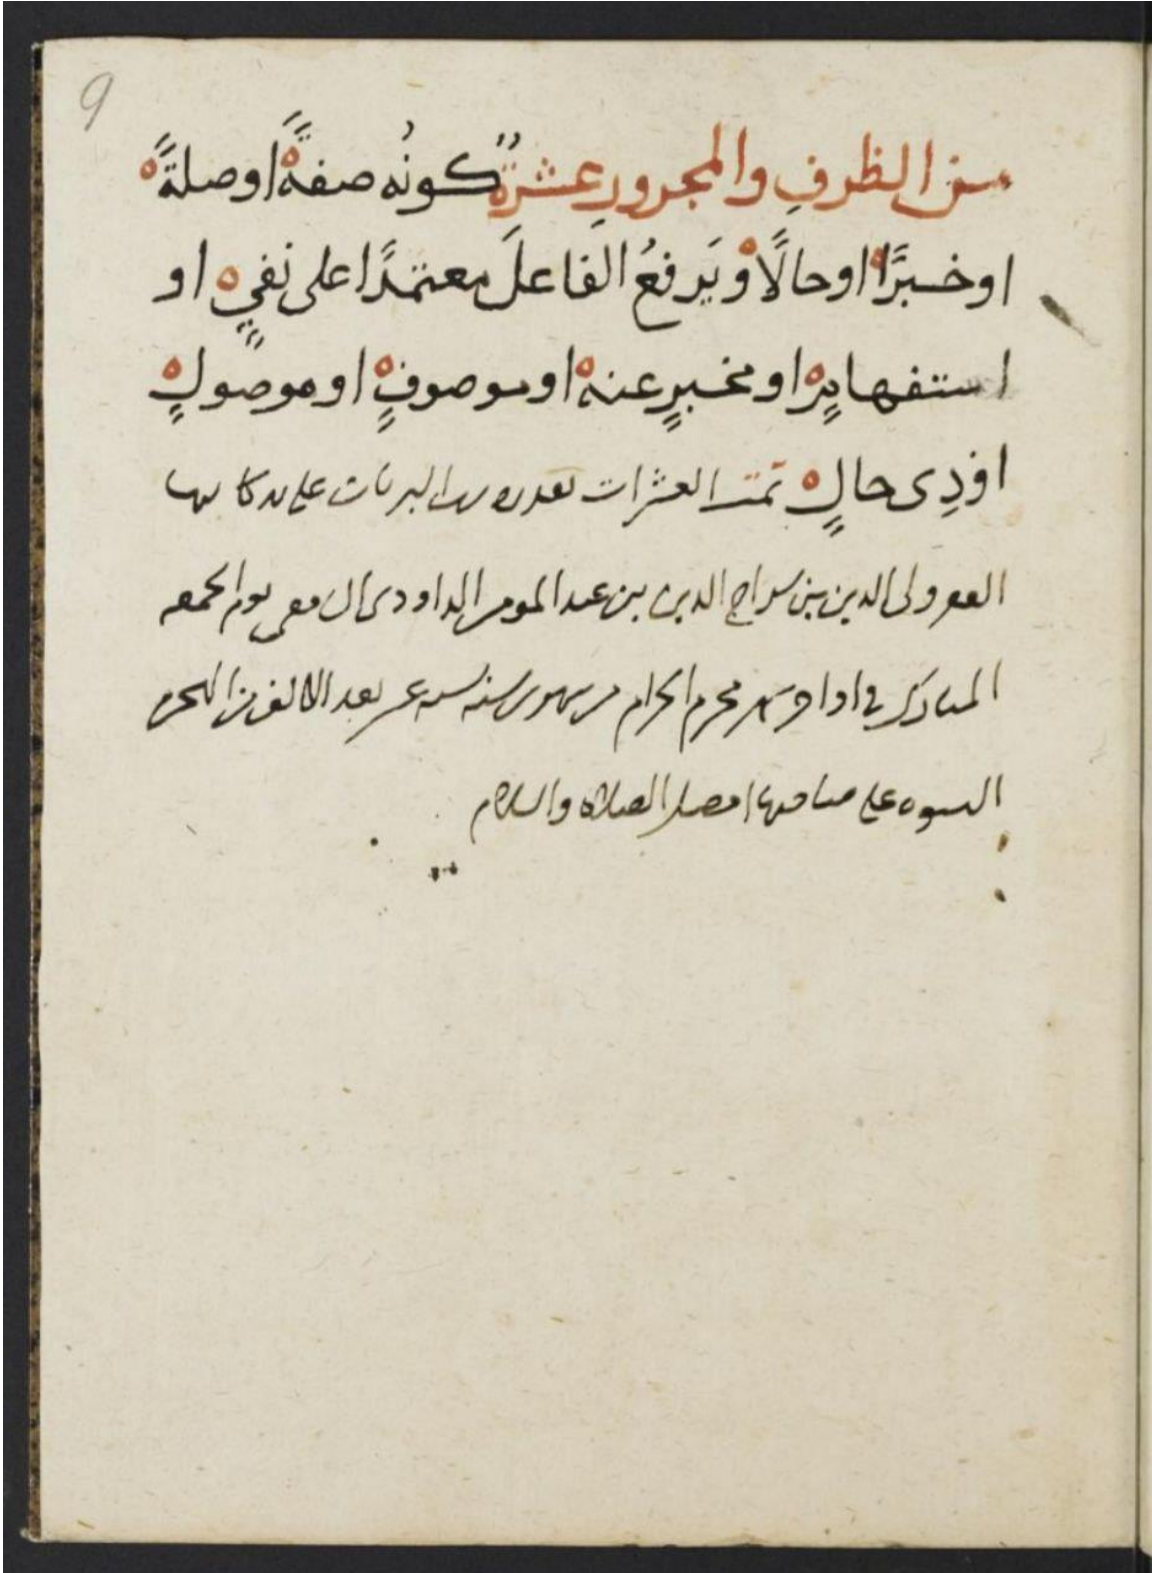 9
من الظرفِ والمجرورِ عشرةٌ كونُه صفةً او صلةً
او خبرًا او حالًا ويَرفعُ الفاعلَ معتمدًا على نفيٍ او
استفهامٍ او مخبرٍ عنه او موصوفٍ او موصولٍ
او ذِى حالٍ تمت العشرات بقدره رب البريات على يد كاتبها
الفقير ولى الدين بن سراج الدين بن عبد المومن الداودى الشافعى يوم الجمعه
المبارك فى اواخر شهر محرم الحرام من شهور سنه عشر بعد الالف من الهجره
النبويه على صاحبها افضل الصلاه والسلام